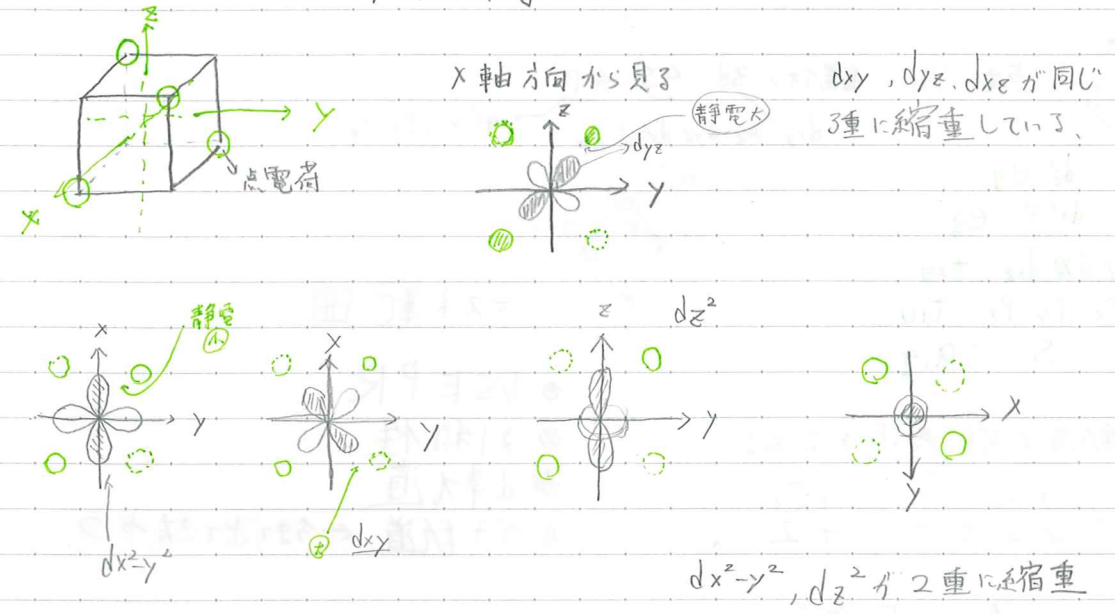 z
y
x
点電荷
x軸方向から見る
z
静電大
dyz
y
dxy, dyz, dxzが同じ
3重に縮重している、
x
静電
小
y
dx²-y²
x
y
大
dxy
z
dz²
y
x
y
dx²-y², dz²が2重に縮重